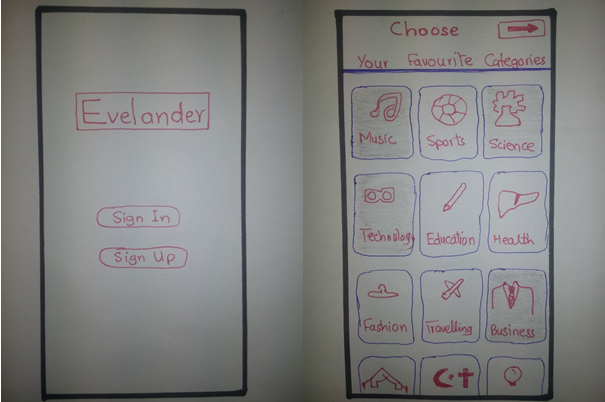 Evelander
Sign In
Sign Up
Choose
Your Favourite Categories
Music
Sports
Science
Technology
Education
Health
Fashion
Travelling
Business